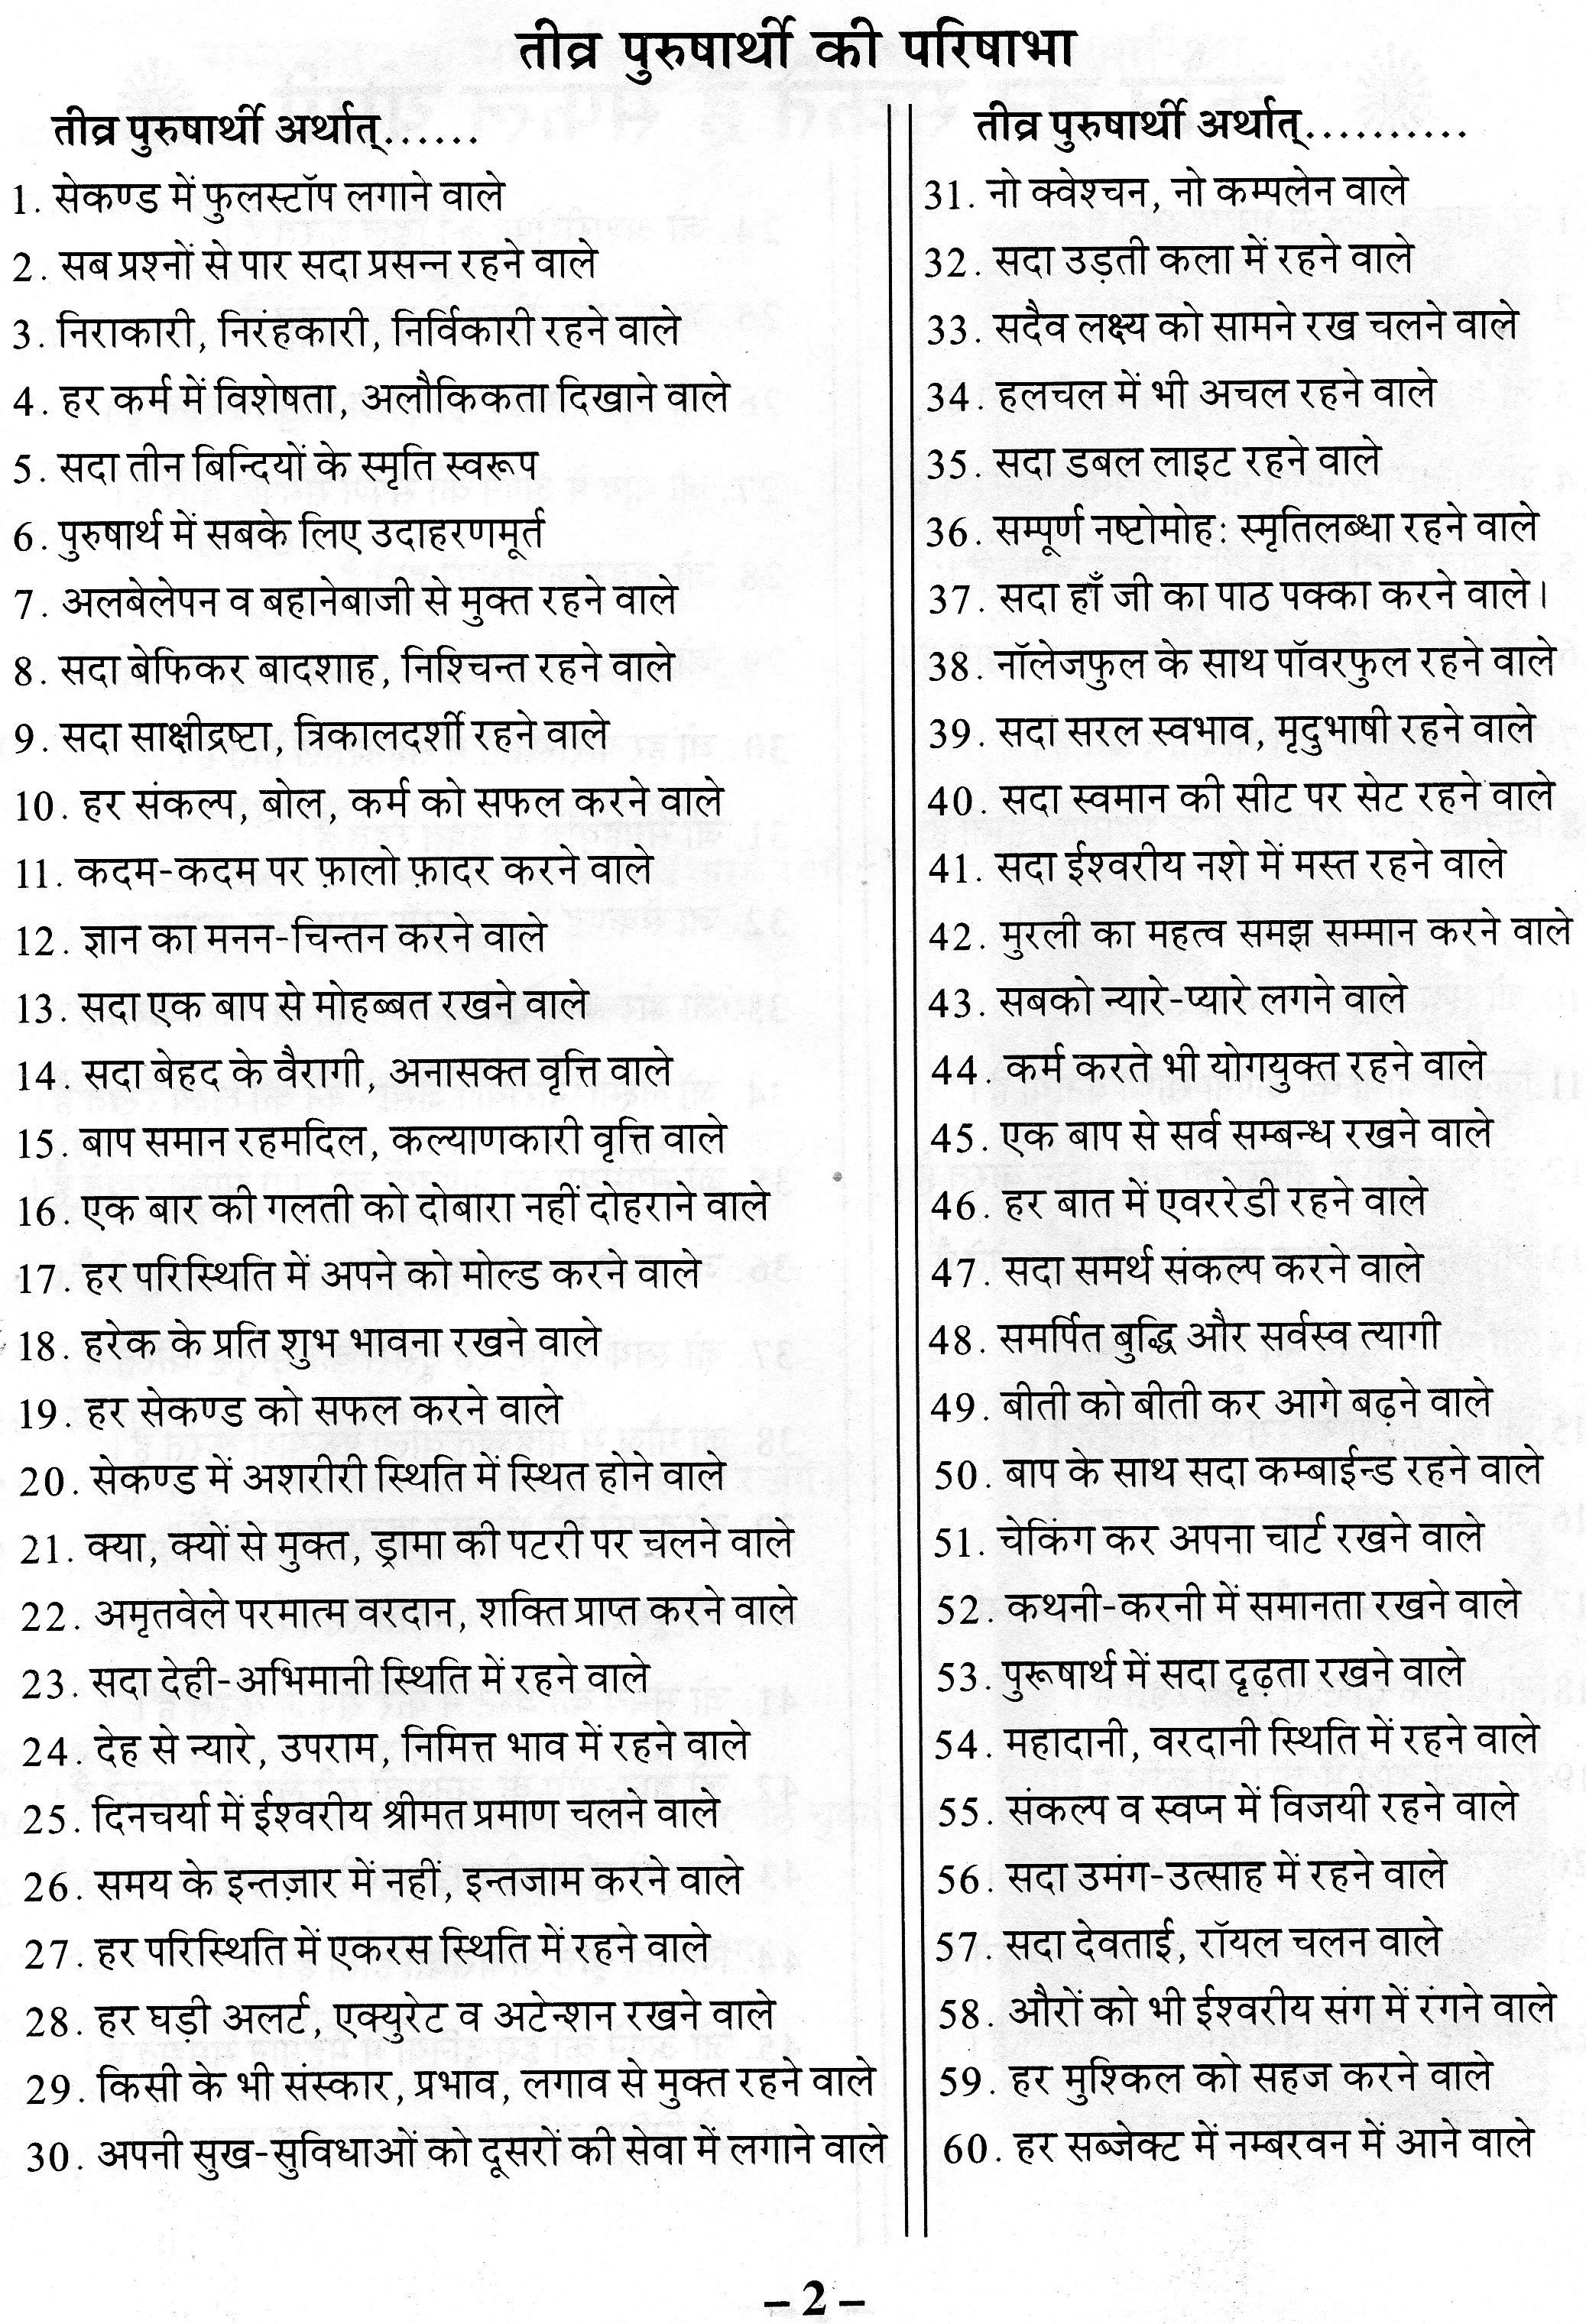 तीव्र पुरुषार्थी की परिषाभा
तीव्र पुरुषार्थी अर्थात्......
1. सेकण्ड में फुलस्टॉप लगाने वाले
2. सब प्रश्नों से पार सदा प्रसन्न रहने वाले
3. निराकारी, निरंहकारी, निर्विकारी रहने वाले
4. हर कर्म में विशेषता, अलौकिकता दिखाने वाले
5. सदा तीन बिन्दियों के स्मृति स्वरूप
6. पुरुषार्थ में सबके लिए उदाहरणमूर्त
7. अलबेलेपन व बहानेबाजी से मुक्त रहने वाले
8. सदा बेफिकर बादशाह, निश्चिन्त रहने वाले
9. सदा साक्षीद्रष्टा, त्रिकालदर्शी रहने वाले
10. हर संकल्प, बोल, कर्म को सफल करने वाले
11. कदम-कदम पर फ़ालो फ़ादर करने वाले
12. ज्ञान का मनन-चिन्तन करने वाले
13. सदा एक बाप से मोहब्बत रखने वाले
14. सदा बेहद के वैरागी, अनासक्त वृत्ति वाले
15. बाप समान रहमदिल, कल्याणकारी वृत्ति वाले
16. एक बार की गलती को दोबारा नहीं दोहराने वाले
17. हर परिस्थिति में अपने को मोल्ड करने वाले
18. हरेक के प्रति शुभ भावना रखने वाले
19. हर सेकण्ड को सफल करने वाले
20. सेकण्ड में अशरीरी स्थिति में स्थित होने वाले
21. क्या, क्यों से मुक्त, ड्रामा की पटरी पर चलने वाले
22. अमृतवेले परमात्म वरदान, शक्ति प्राप्त करने वाले
23. सदा देही-अभिमानी स्थिति में रहने वाले
24. देह से न्यारे, उपराम, निमित्त भाव में रहने वाले
25. दिनचर्या में ईश्वरीय श्रीमत प्रमाण चलने वाले
26. समय के इन्तज़ार में नहीं, इन्तजाम करने वाले
27. हर परिस्थिति में एकरस स्थिति में रहने वाले
28. हर घड़ी अलर्ट, एक्युरेट व अटेन्शन रखने वाले
29. किसी के भी संस्कार, प्रभाव, लगाव से मुक्त रहने वाले
30. अपनी सुख-सुविधाओं को दूसरों की सेवा में लगाने वाले
तीव्र पुरुषार्थी अर्थात्..........
31. नो क्वेश्चन, नो कम्पलेन वाले
32. सदा उड़ती कला में रहने वाले
33. सदैव लक्ष्य को सामने रख चलने वाले
34. हलचल में भी अचल रहने वाले
35. सदा डबल लाइट रहने वाले
36. सम्पूर्ण नष्टोमोह: स्मृतिलब्धा रहने वाले
37. सदा हाँ जी का पाठ पक्का करने वाले।
38. नॉलेजफुल के साथ पॉवरफुल रहने वाले
39. सदा सरल स्वभाव, मृदुभाषी रहने वाले
40. सदा स्वमान की सीट पर सेट रहने वाले
41. सदा ईश्वरीय नशे में मस्त रहने वाले
42. मुरली का महत्व समझ सम्मान करने वाले
43. सबको न्यारे-प्यारे लगने वाले
44. कर्म करते भी योगयुक्त रहने वाले
45. एक बाप से सर्व सम्बन्ध रखने वाले
46. हर बात में एवररेडी रहने वाले
47. सदा समर्थ संकल्प करने वाले
48. समर्पित बुद्धि और सर्वस्व त्यागी
49. बीती को बीती कर आगे बढ़ने वाले
50. बाप के साथ सदा कम्बाईन्ड रहने वाले
51. चेकिंग कर अपना चार्ट रखने वाले
52. कथनी-करनी में समानता रखने वाले
53. पुरूषार्थ में सदा दृढ़ता रखने वाले
54. महादानी, वरदानी स्थिति में रहने वाले
55. संकल्प व स्वप्न में विजयी रहने वाले
56. सदा उमंग-उत्साह में रहने वाले
57. सदा देवताई, रॉयल चलन वाले
58. औरों को भी ईश्वरीय संग में रंगने वाले
59. हर मुश्किल को सहज करने वाले
60. हर सब्जेक्ट में नम्बरवन में आने वाले
– 2 –